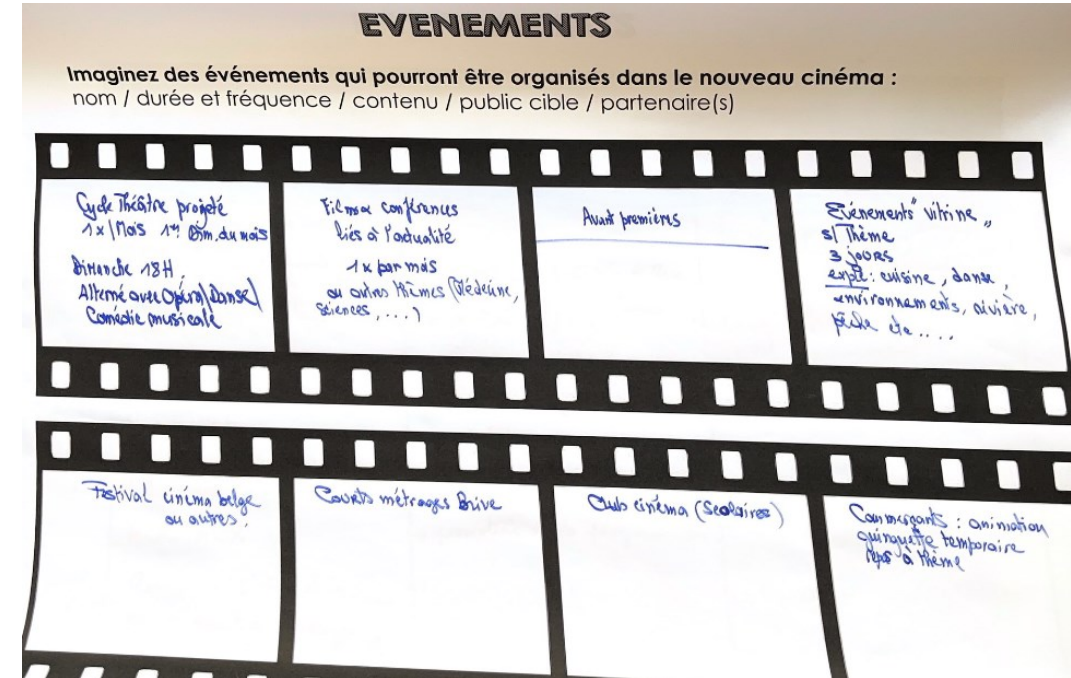 EVENEMENTS
Imaginez des événements qui pourront être organisés dans le nouveau cinéma :
nom / durée et fréquence / contenu / public cible / partenaire(s)
Cycle Théâtre projeté
1x/Mois 1er Dim. du mois
Dimanche 18H.
Alterné avec Opéra/Danse/
Comédie musicale
Films conférences
liés à l'actualité
1x par mois
ou autres thèmes (Médecine,
Sciences, ...)
Avant premières
Evénements "vitrine"
s/ Thème
3 jours
exple : cuisine, danse,
environnements, rivière,
pêche etc ....
Festival cinéma belge
ou autres.
Courts métrages Brive
Club cinéma (Scolaires)
Commerçants : animation
guinguette temporaire
repas à thème